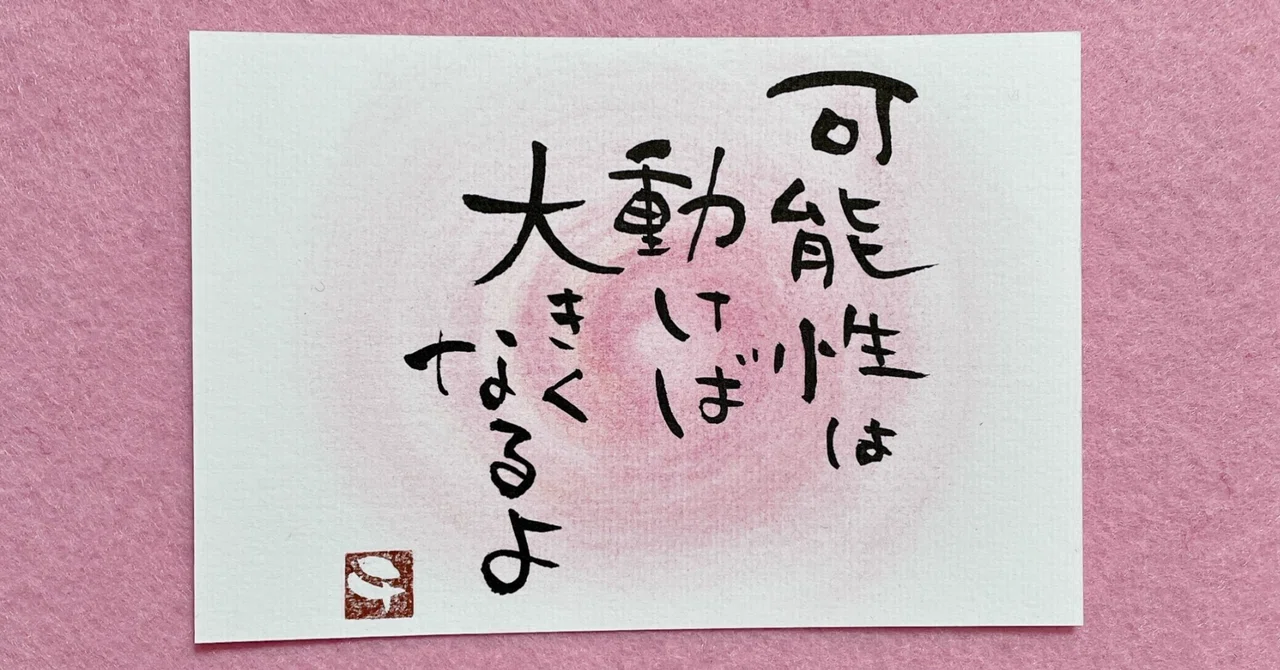 可能性は
動けば
大きく
なるよ